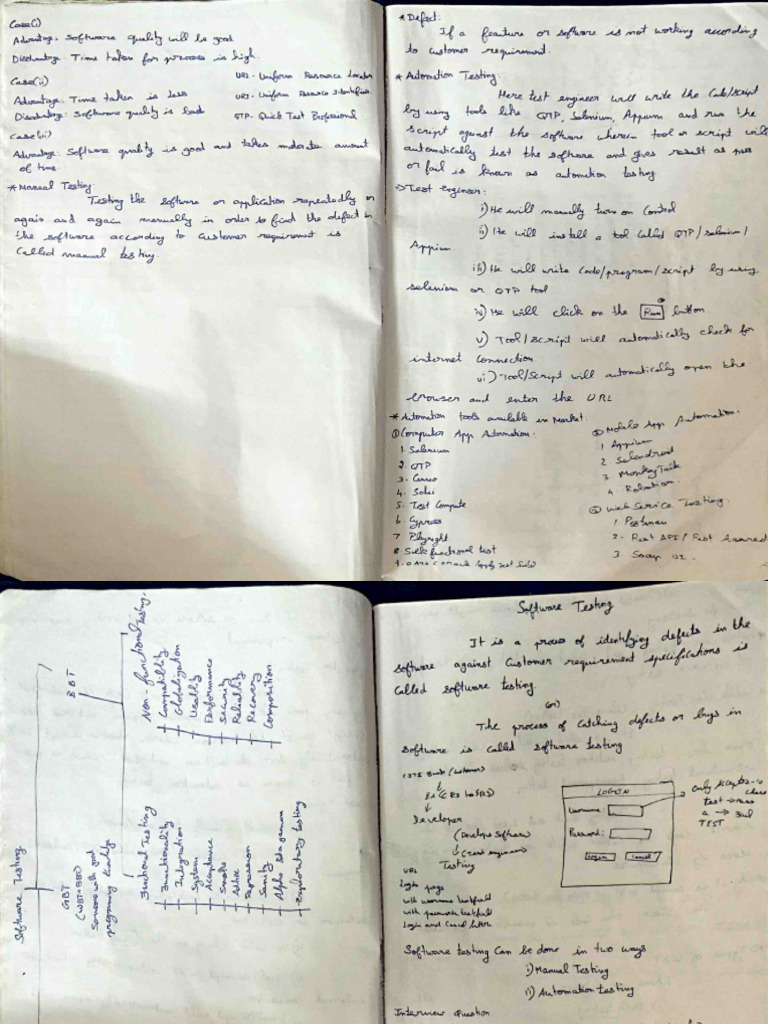 Case(i)
Advantage: Software quality will be good
Disadvantag: Time taken for process is high.
Case(ii)
Advantage: Time taken is less
Disadvantag: Software quality is bad
Case(iii)
Advantage: Software quality is good and takes moderate amount
of time.
URL - Uniform Resource Locator
URI - Uniform Resource Identifier
QTP - Quick Test Professional
* Manual Testing:
Testing the software or application repeatedly or
again and again manually in order to find the defect in
the software according to customer requirement is
Called manual testing.
* Defect:
If a feature or software is not working according
to customer requirement.
* Automation Testing:
Here test engineer will write the Code/script
by using tools like QTP, Selenium, Appium and run the
script against the software wherein tool or script will
automatically test the software and gives result as pass
or fail is known as automation testing
Test engineer:
i) He will manually turn on Control
ii) He will install a tool called QTP/selenium/
Appium
iii) He will write Code/program/script by using
selenium or QTP tool
iv) He will click on the Run button.
v) Tool/Script will automatically check for
internet connection.
vi) Tool/Script will automatically open the
browser and enter the URL
* Automation tools available in Market:
① Computer App Automation:
1. Selenium
2. QTP
4. Sahi
5. Test Compute
6. Cypress
7. Playright
8 Silk functional test
② Mobile App Automation:
1. Appium
2. Selendroid
3. MonkeyTalk
4. Robotium
③ Web Service Testing:
1 Postman
2. Rest API/ Rest Assured
3 Soap UI.
Software Testing
GBT
(WBT+BBT)
Someone with good
programming knowledge
BBT
Functional Testing
Functionality
Integration
System
Acceptance
Smoke
Adhoc
Regression
Sanity
Alpha Beta gamma
Exploratory testing
Non-functional Testing.
Compatibility
Globalization
Usability
Performance
Security
Reliability
Recovery
Composition
Software Testing
It is a process of identifying defects in the
software against Customer requirement specifications is
Called software testing.
(or)
The process of Catching defects or bugs in
software is called software testing
Developer
(Develops Software)
(Test engineers)
Testing
URL
Login page
with username textfield
with password textfield
Login and Cancel button
LOGIN
Username:
Password:
Login
Cancel
TEST
Software testing Can be done in two ways
i) Manual Testing
ii) Automation testing
Interview Question